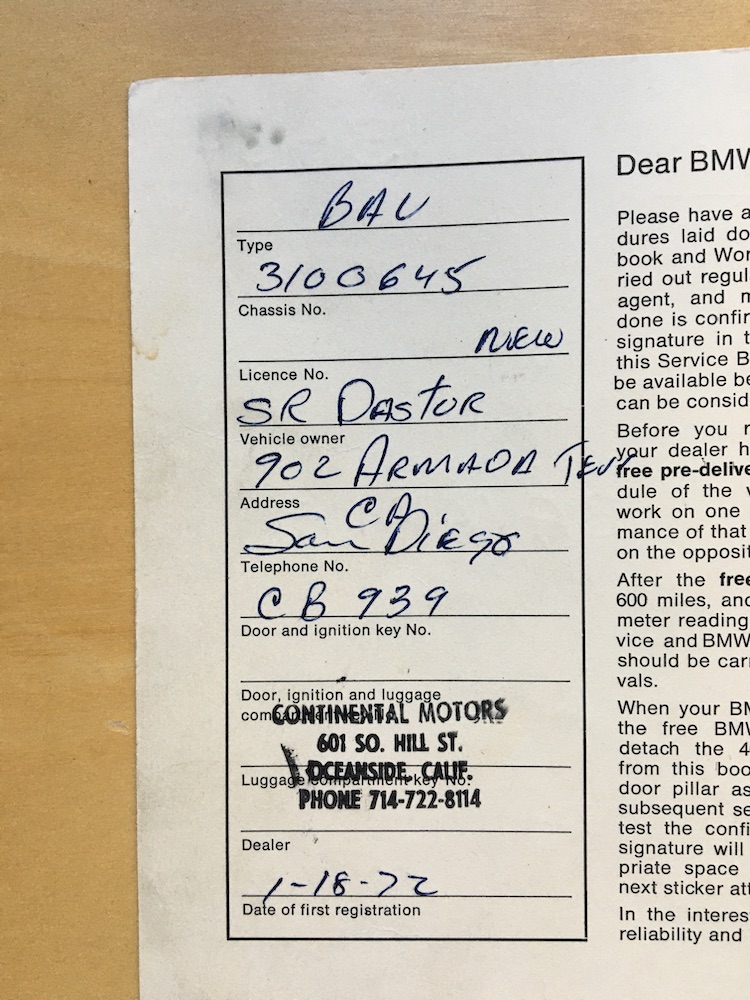 BAV
Type
3100645
Chassis No.
NEW
Licence No.
SR DASTOR
Vehicle owner
902 ARMADA
Address
CA
San Diego
Telephone No.
CB 939
Door and ignition key No.
Door, ignition and luggage
CONTINENTAL MOTORS
601 SO. HILL ST.
OCEANSIDE, CALIF.
Luggage compartment key No.
PHONE 714-722-8114
Dealer
1-18-72
Date of first registration
Dear BMW
Please have a
dures laid do
book and Wor
ried out regul
agent, and m
done is confir
signature in t
this Service B
be available be
can be consid
Before you r
your dealer h
free pre-delive
dule of the v
work on one
mance of that
on the opposit
After the free
600 miles, and
meter reading
vice and BMW
should be car
vals.
When your BM
the free BMW
detach the 4
from this boo
door pillar as
subsequent se
test the confi
signature will
priate space
next sticker att
In the interes
reliability and